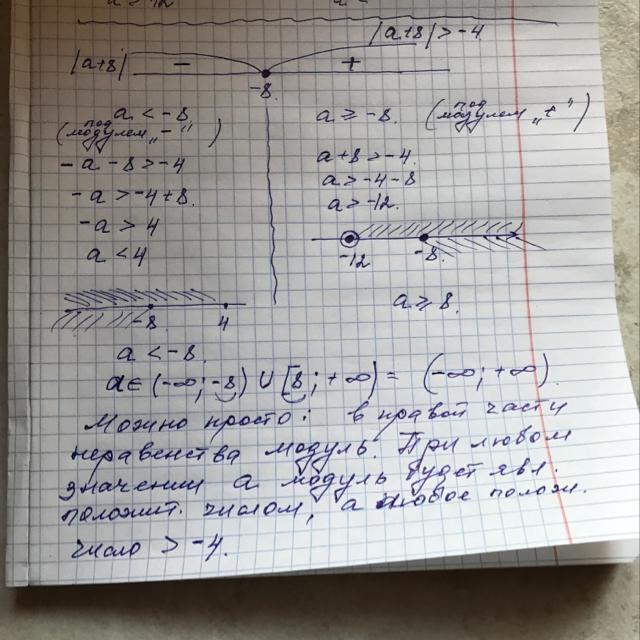 |a+8| > -4
|a+8| − +
-8
a < -8.
(под модулем „-“)
-a -8 > -4
-a > -4+8.
-a > 4
a < 4
-8 4
a < -8.
a ≥ -8. (под модулем „+“)
a+8 > -4.
a > -4-8
a > -12.
-12 -8
a ≥ 8.
a ∈ (-∞; -8) ∪ [8; +∞) = (-∞; +∞)
Можно просто: в правой части
неравенства модуль. При любом
значении a модуль будет явл.
положит. числом, а любое полож.
число > -4.